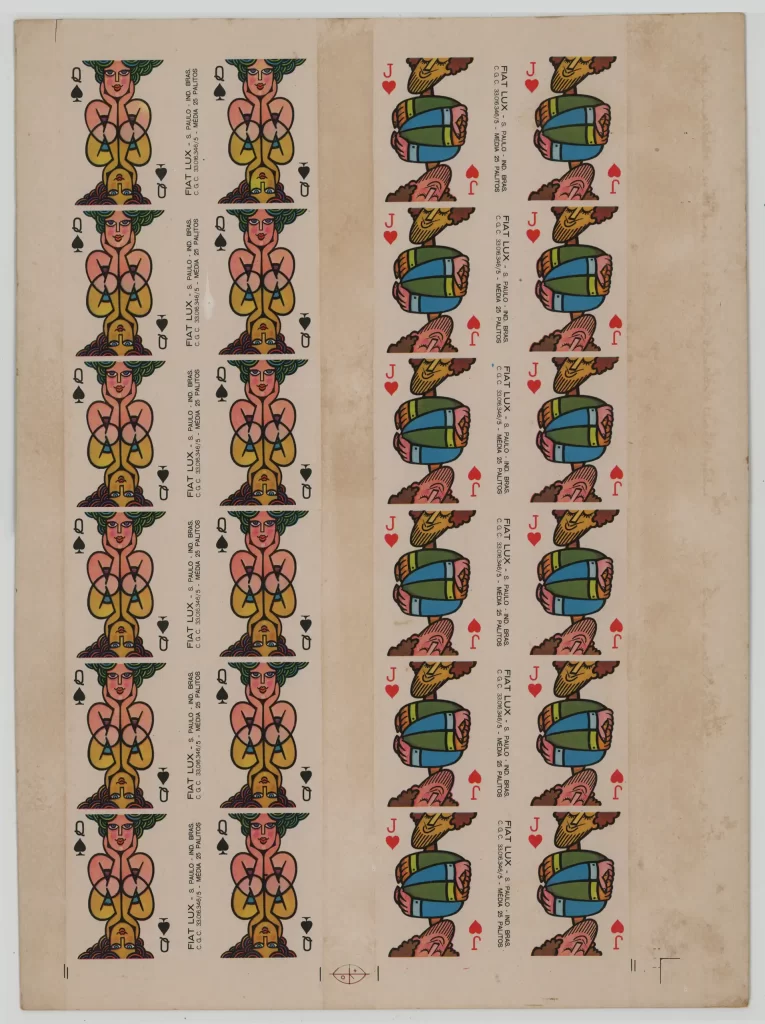 Q
FIAT LUX - S. PAULO - IND. BRAS.
C. G. C. 33.016.346/5 - MÉDIA 25 PALITOS
Q
J
FIAT LUX - S. PAULO - IND. BRAS.
C. G. C. 33.016.346/5 - MÉDIA 25 PALITOS
J
Q
Q
J
J
Q
FIAT LUX - S. PAULO - IND. BRAS.
C. G. C. 33.016.346/5 - MÉDIA 25 PALITOS
Q
J
FIAT LUX - S. PAULO - IND. BRAS.
C. G. C. 33.016.346/5 - MÉDIA 25 PALITOS
J
Q
Q
J
J
Q
FIAT LUX - S. PAULO - IND. BRAS.
C. G. C. 33.016.346/5 - MÉDIA 25 PALITOS
Q
J
FIAT LUX - S. PAULO - IND. BRAS.
C. G. C. 33.016.346/5 - MÉDIA 25 PALITOS
J
Q
Q
J
J
Q
FIAT LUX - S. PAULO - IND. BRAS.
C. G. C. 33.016.346/5 - MÉDIA 25 PALITOS
Q
J
FIAT LUX - S. PAULO - IND. BRAS.
C. G. C. 33.016.346/5 - MÉDIA 25 PALITOS
J
Q
Q
J
J
Q
FIAT LUX - S. PAULO - IND. BRAS.
C. G. C. 33.016.346/5 - MÉDIA 25 PALITOS
Q
J
FIAT LUX - S. PAULO - IND. BRAS.
C. G. C. 33.016.346/5 - MÉDIA 25 PALITOS
J
Q
Q
J
J
Q
FIAT LUX - S. PAULO - IND. BRAS.
C. G. C. 33.016.346/5 - MÉDIA 25 PALITOS
Q
J
FIAT LUX - S. PAULO - IND. BRAS.
C. G. C. 33.016.346/5 - MÉDIA 25 PALITOS
J
Q
Q
J
J